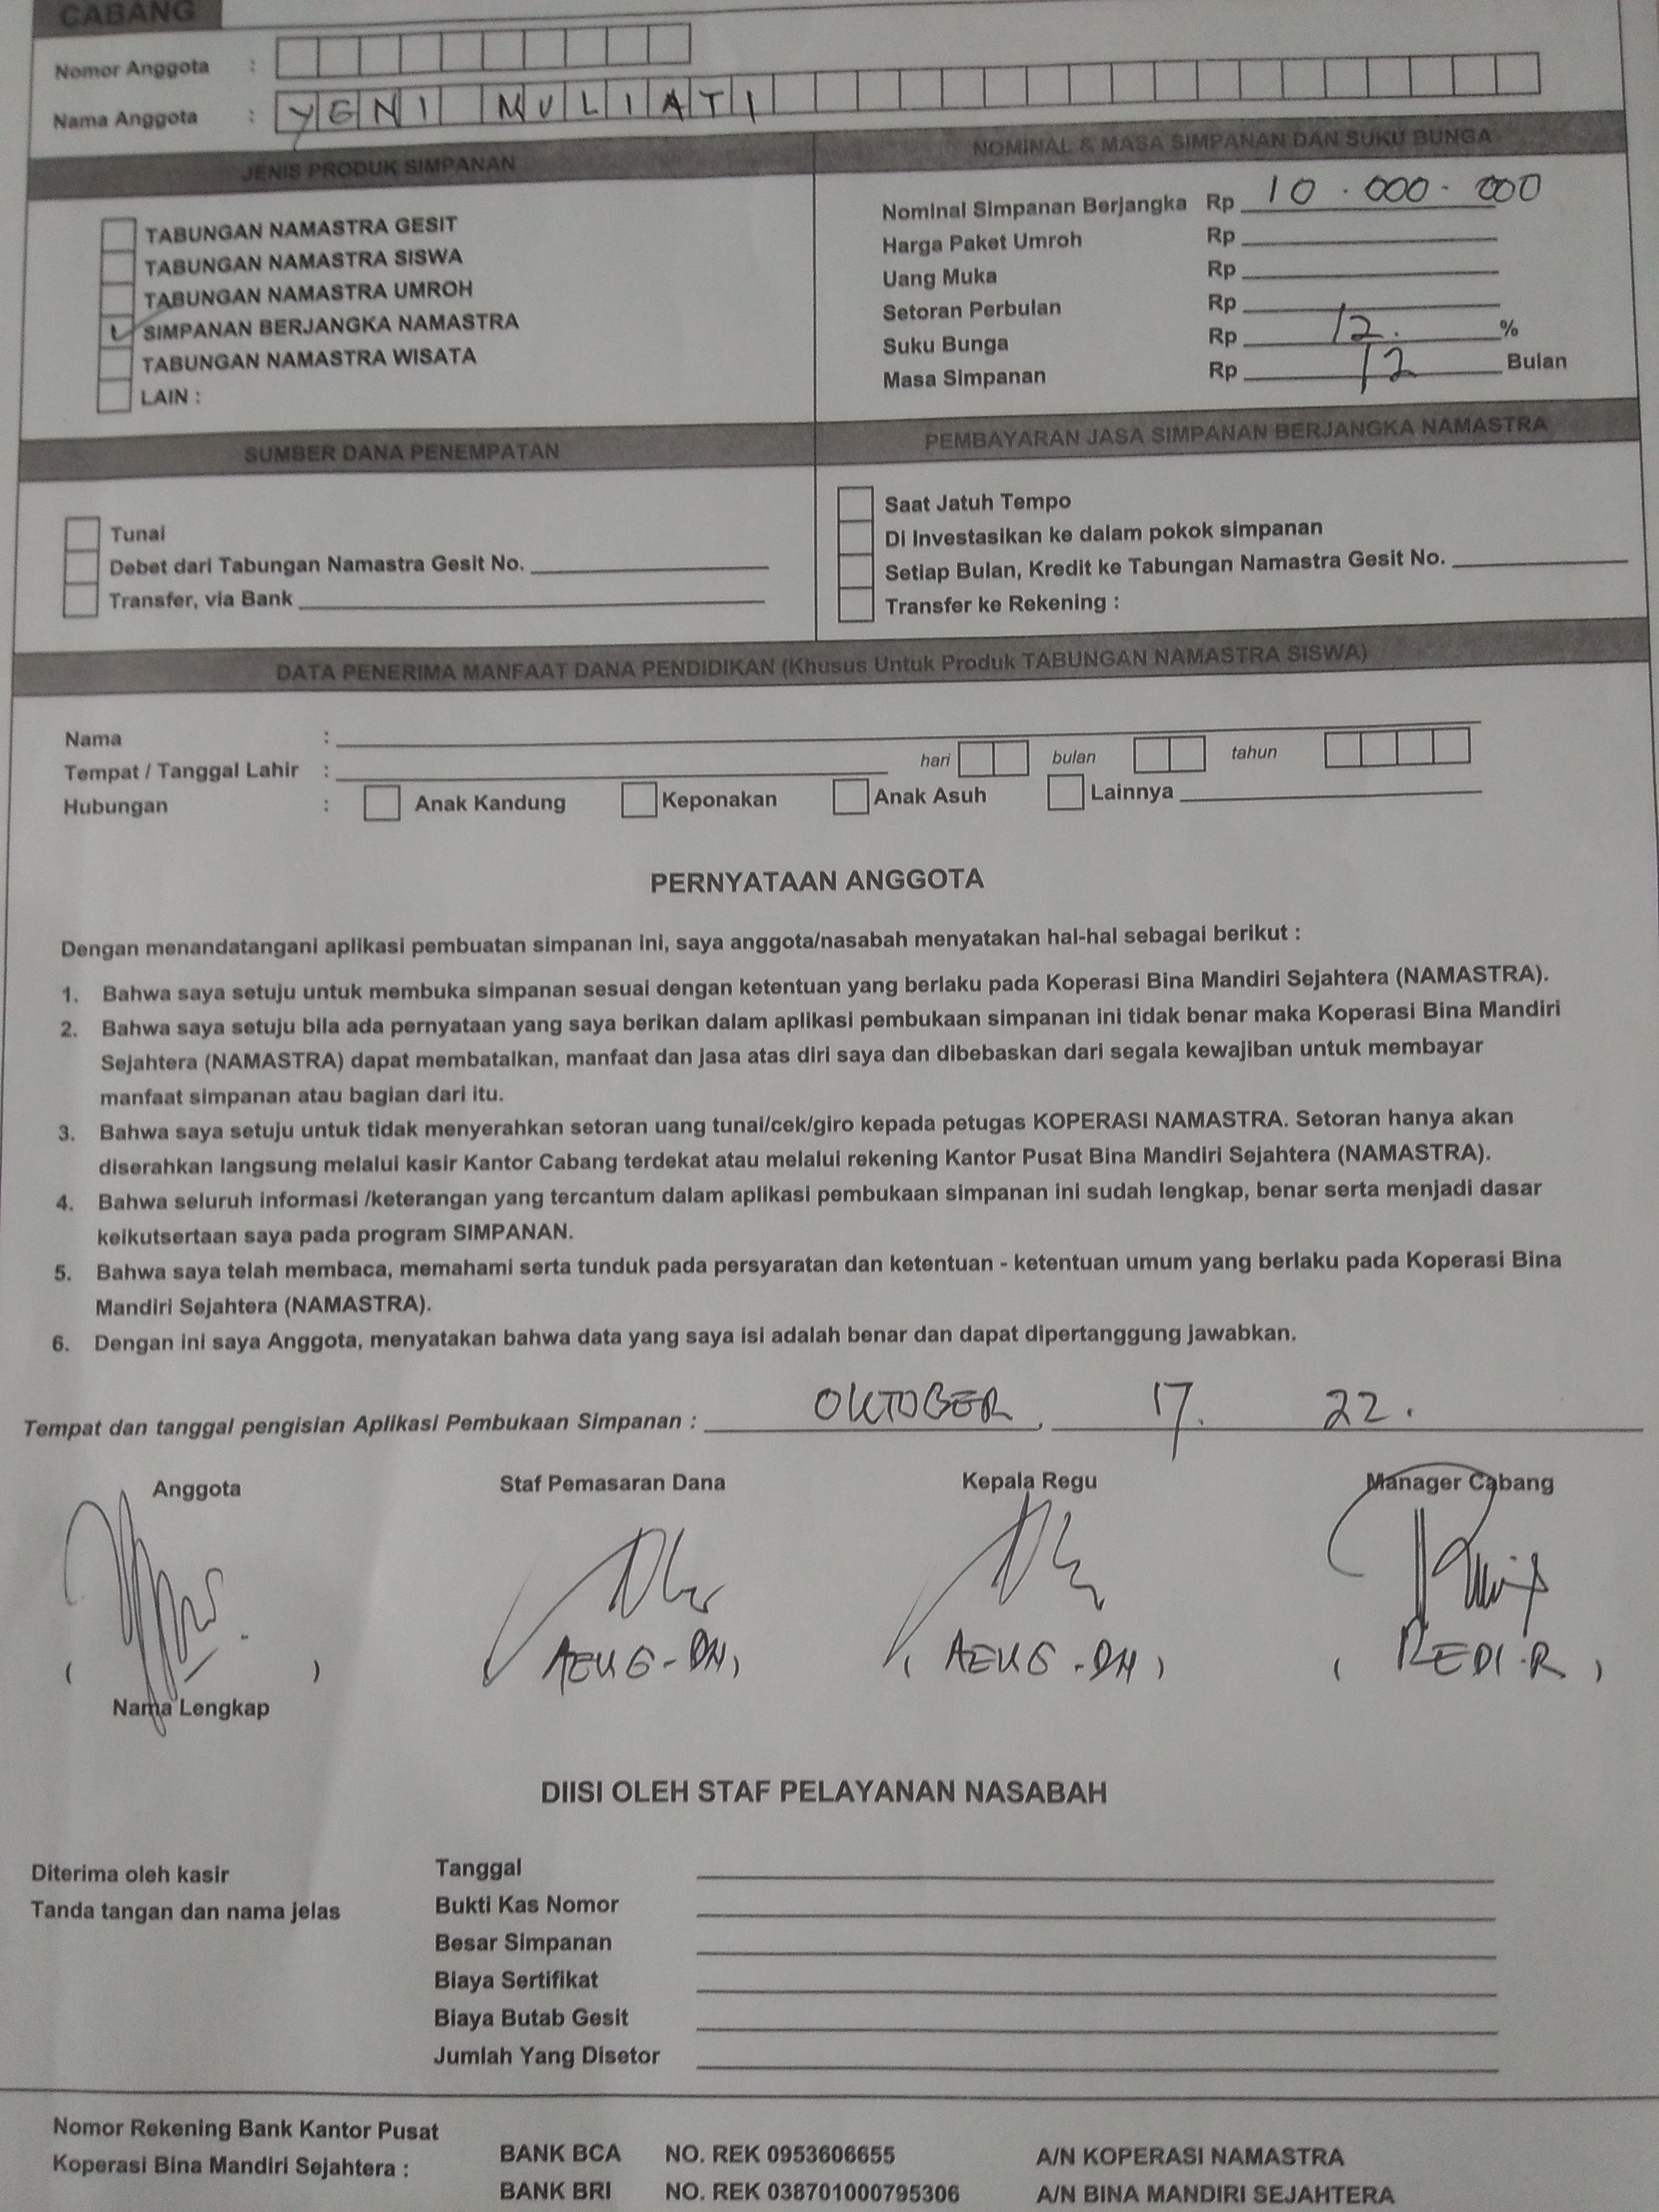 CABANG
Nomor Anggota :
Nama Anggota : YENI MULIATI
JENIS PRODUK SIMPANAN
TABUNGAN NAMASTRA GESIT
TABUNGAN NAMASTRA SISWA
TABUNGAN NAMASTRA UMROH
SIMPANAN BERJANGKA NAMASTRA
TABUNGAN NAMASTRA WISATA
LAIN :
NOMINAL & MASA SIMPANAN DAN SUKU BUNGA
Nominal Simpanan Berjangka Rp 10.000.000
Harga Paket Umroh Rp
Uang Muka Rp
Setoran Perbulan Rp
Suku Bunga Rp 12. %
Masa Simpanan Rp 12 Bulan
SUMBER DANA PENEMPATAN
Tunai
Debet dari Tabungan Namastra Gesit No.
Transfer, via Bank
PEMBAYARAN JASA SIMPANAN BERJANGKA NAMASTRA
Saat Jatuh Tempo
Di Investasikan ke dalam pokok simpanan
Setiap Bulan, Kredit ke Tabungan Namastra Gesit No.
Transfer ke Rekening :
DATA PENERIMA MANFAAT DANA PENDIDIKAN (Khusus Untuk Produk TABUNGAN NAMASTRA SISWA)
Nama :
Tempat / Tanggal Lahir : hari bulan tahun
Hubungan : Anak Kandung Keponakan Anak Asuh Lainnya
PERNYATAAN ANGGOTA
Dengan menandatangani aplikasi pembuatan simpanan ini, saya anggota/nasabah menyatakan hal-hal sebagai berikut :
1. Bahwa saya setuju untuk membuka simpanan sesuai dengan ketentuan yang berlaku pada Koperasi Bina Mandiri Sejahtera (NAMASTRA).
2. Bahwa saya setuju bila ada pernyataan yang saya berikan dalam aplikasi pembukaan simpanan ini tidak benar maka Koperasi Bina Mandiri
Sejahtera (NAMASTRA) dapat membatalkan, manfaat dan jasa atas diri saya dan dibebaskan dari segala kewajiban untuk membayar
manfaat simpanan atau bagian dari itu.
3. Bahwa saya setuju untuk tidak menyerahkan setoran uang tunai/cek/giro kepada petugas KOPERASI NAMASTRA. Setoran hanya akan
diserahkan langsung melalui kasir Kantor Cabang terdekat atau melalui rekening Kantor Pusat Bina Mandiri Sejahtera (NAMASTRA).
4. Bahwa seluruh informasi /keterangan yang tercantum dalam aplikasi pembukaan simpanan ini sudah lengkap, benar serta menjadi dasar
keikutsertaan saya pada program SIMPANAN.
5. Bahwa saya telah membaca, memahami serta tunduk pada persyaratan dan ketentuan - ketentuan umum yang berlaku pada Koperasi Bina
Mandiri Sejahtera (NAMASTRA).
6. Dengan ini saya Anggota, menyatakan bahwa data yang saya isi adalah benar dan dapat dipertanggung jawabkan.
Tempat dan tanggal pengisian Aplikasi Pembukaan Simpanan : OKTOBER, 17. 22.
Anggota Staf Pemasaran Dana Kepala Regu Manager Cabang
( ) ( REDI.R )
Nama Lengkap
DIISI OLEH STAF PELAYANAN NASABAH
Diterima oleh kasir
Tanda tangan dan nama jelas
Tanggal
Bukti Kas Nomor
Besar Simpanan
Biaya Sertifikat
Biaya Butab Gesit
Jumlah Yang Disetor
Nomor Rekening Bank Kantor Pusat
Koperasi Bina Mandiri Sejahtera :
BANK BCA NO. REK 0953606655 A/N KOPERASI NAMASTRA
BANK BRI NO. REK 038701000795306 A/N BINA MANDIRI SEJAHTERA